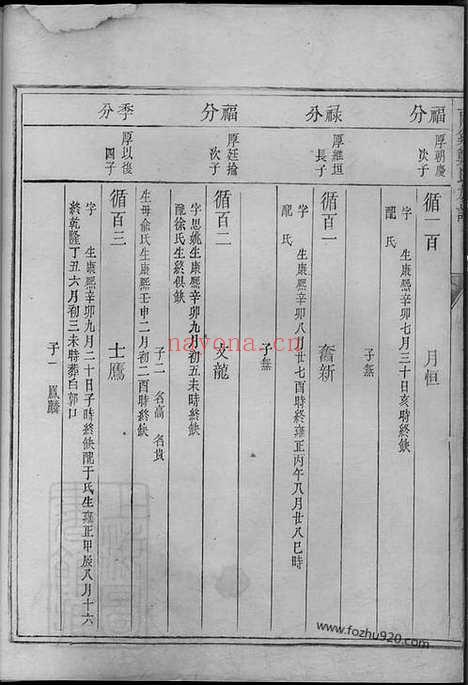 福分
厚朝慶
次子
循二百 月恒
字 生康熙辛卯七月三十日亥時終缺
配 氏
子無
祿分
厚維垣
長子
循百一 奮新
字 生康熙辛卯八月廿七酉時終雍正丙午八月廿八巳時
配 氏
子無
福分
厚廷掄
次子
循百二 文龍
字思姚生康熙辛卯九月初五未時終缺
配徐氏生終俱缺
子二 名高 名貴
生母俞氏生康熙壬申二月初二酉時終缺
季分
厚以後
四子
循百三 士鷹
字 生康熙辛卯九月二十日子時終缺配于氏生雍正甲辰八月十六
終乾隆丁丑六月初三未時葬白郭口
子一 鳳麟
nayona.cn
www.fozhu920.com